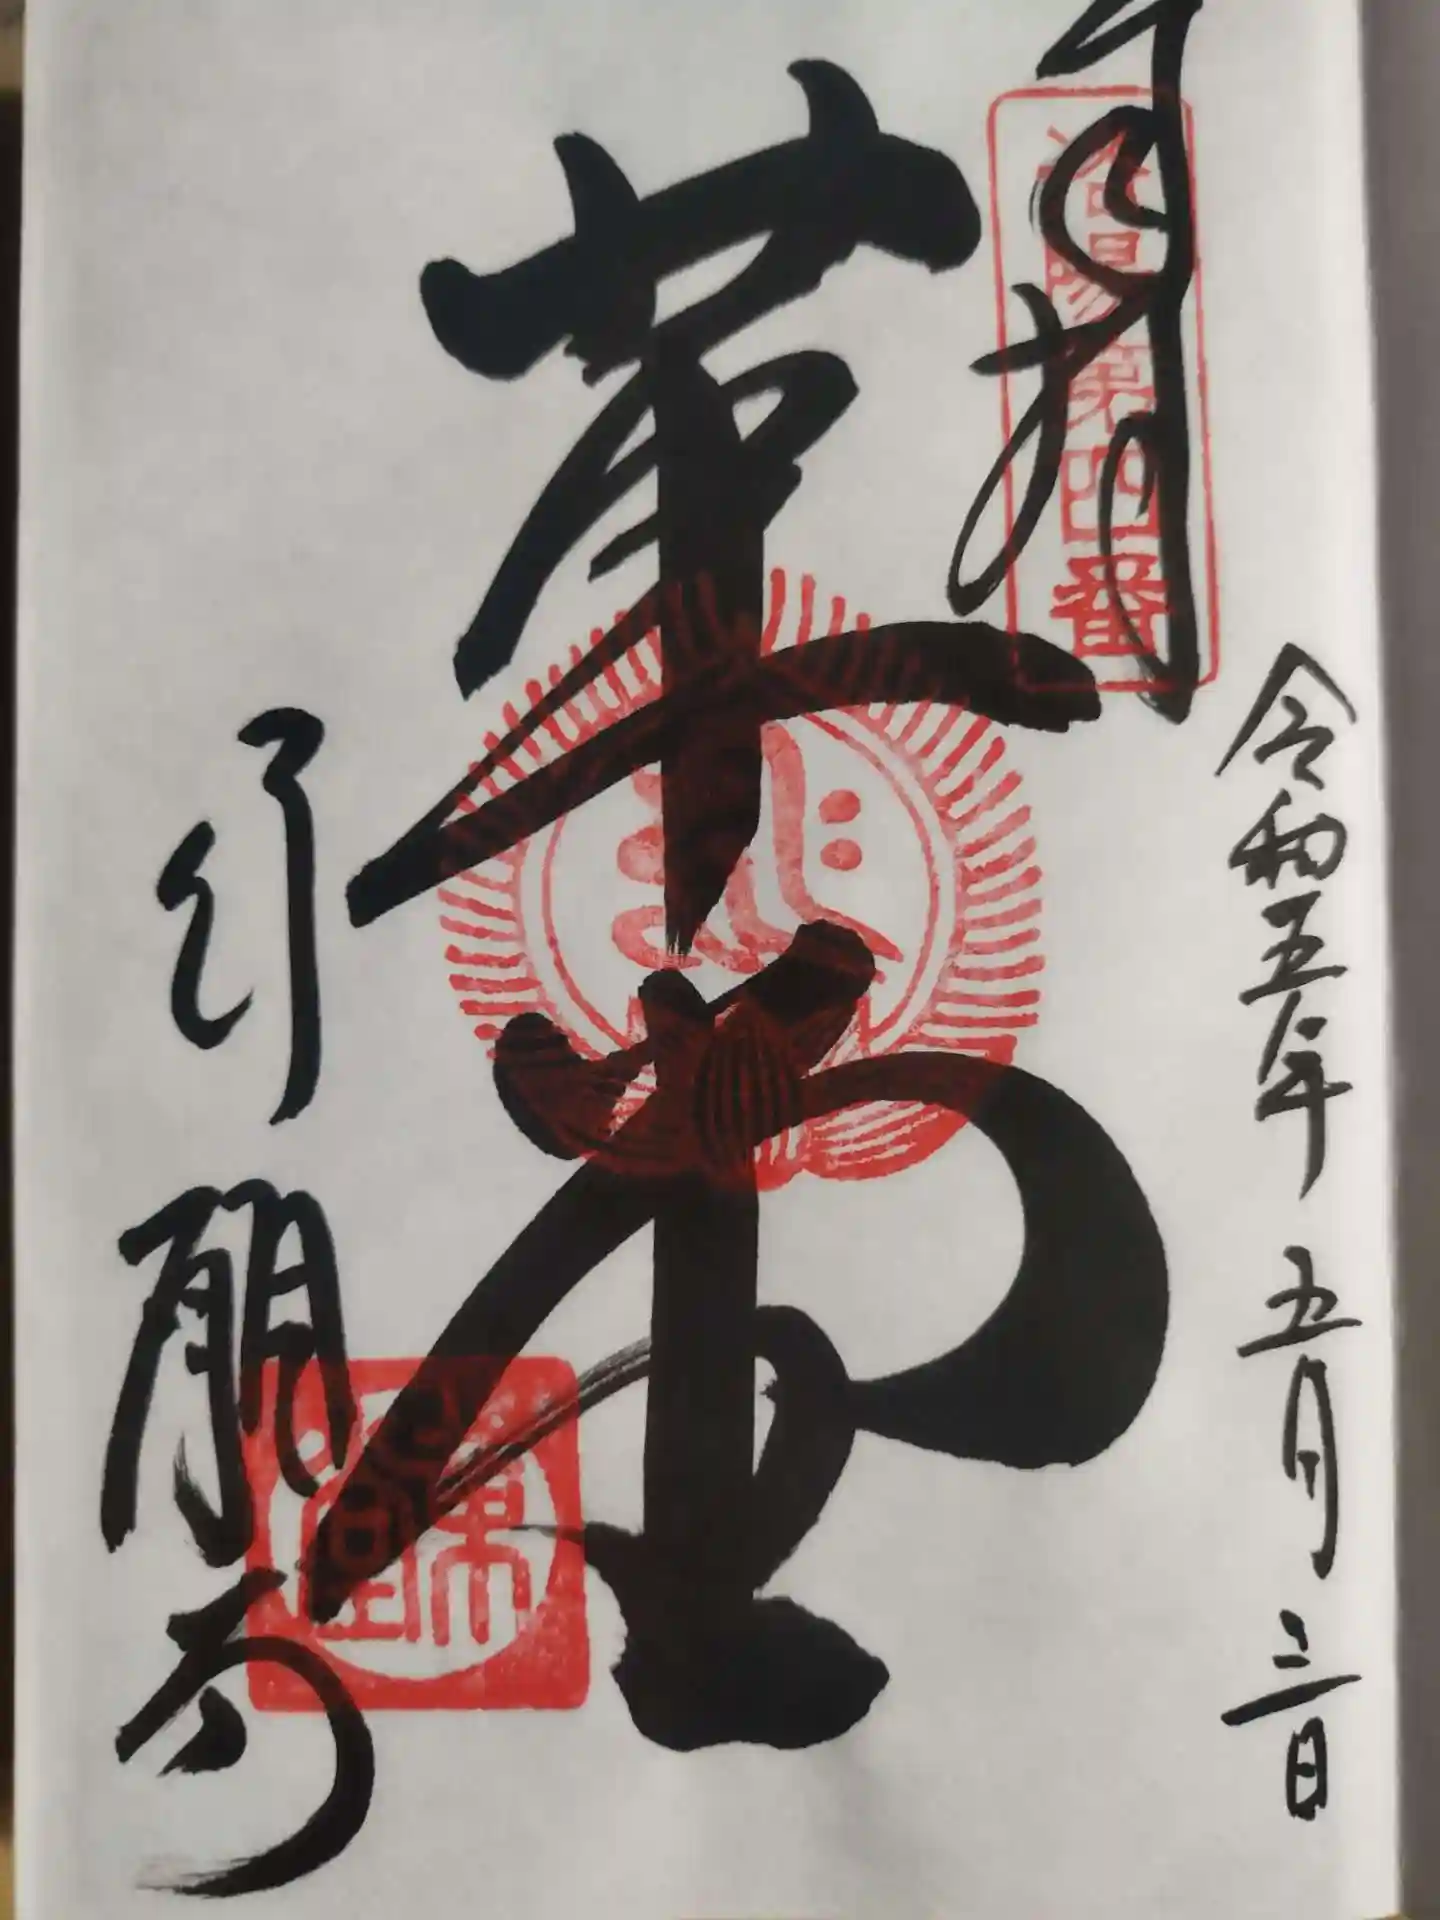 奉拝
洛陽第四番
令和五年五月三日
革堂
行願寺
革堂